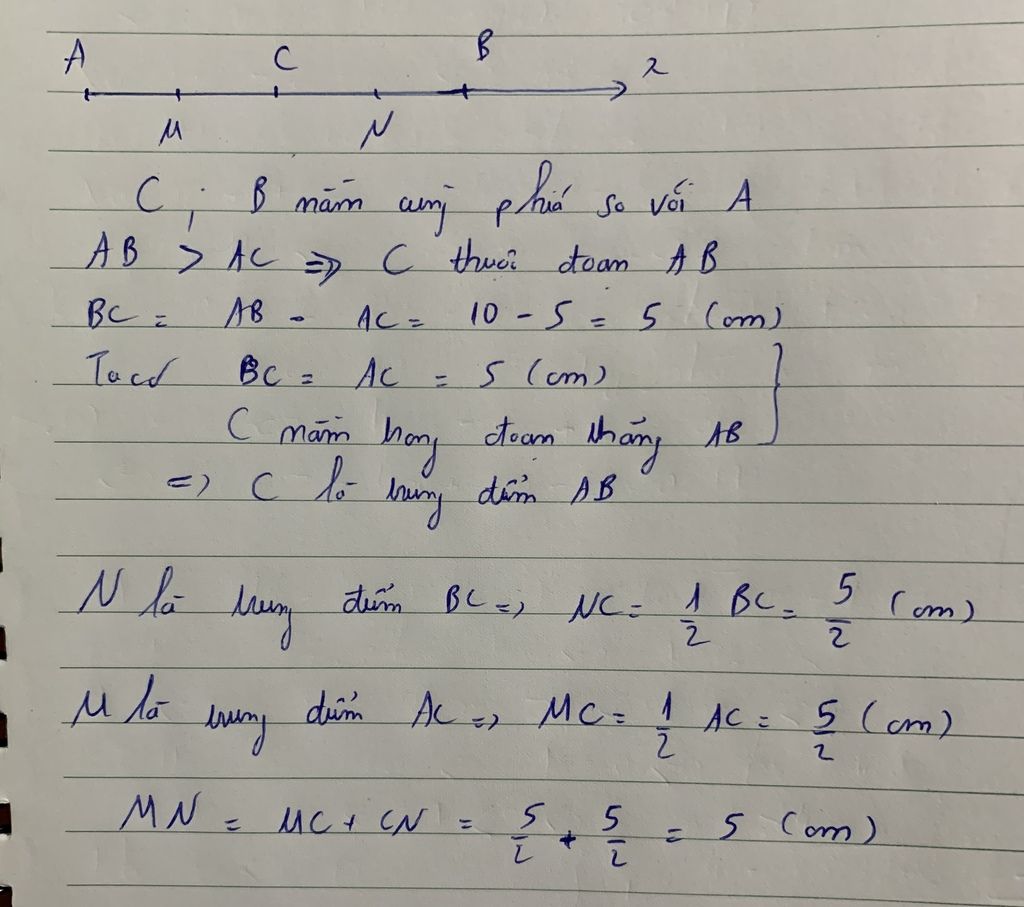 A C B x
M N
C ; B nằm cùng phía so với A
AB > AC => C thuộc đoạn AB
BC = AB - AC = 10 - 5 = 5 (cm)
Ta có BC = AC = 5 (cm)
C nằm trong đoạn thẳng AB
=> C là trung điểm AB
N là trung điểm BC => NC = 1/2 BC = 5/2 (cm)
M là trung điểm AC => MC = 1/2 AC = 5/2 (cm)
MN = MC + CN = 5/2 + 5/2 = 5 (cm)